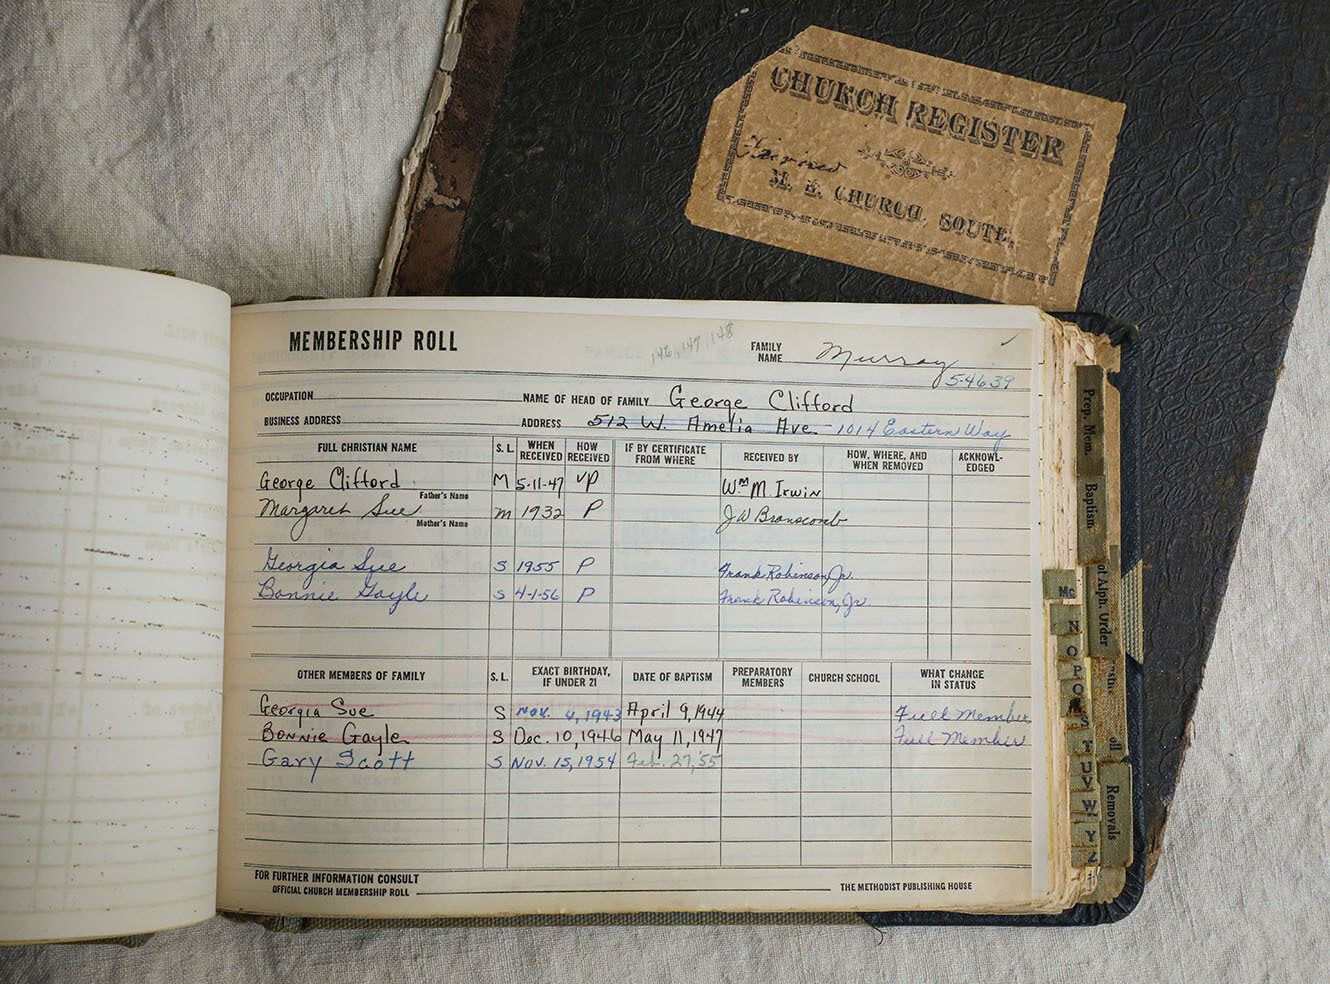 CHURCH REGISTER
M. E. CHURCH, SOUTH,
MEMBERSHIP ROLL 146, 147, 148 FAMILY NAME Murray
5-4639
OCCUPATION NAME OF HEAD OF FAMILY George Clifford
BUSINESS ADDRESS ADDRESS 512 W. Amelia Ave. - 1014 Eastern Way
FULL CHRISTIAN NAME S. L. WHEN RECEIVED HOW RECEIVED IF BY CERTIFICATE FROM WHERE RECEIVED BY HOW, WHERE, AND WHEN REMOVED ACKNOWL-EDGED
George Clifford M 5-11-47 VP Wm M. Irwin
Father's Name
Margaret Sue m 1932 P J W Branscomb
Mother's Name
Georgia Sue S 1955 P Frank Robinson, Jr.
Bonnie Gayle S 4-1-56 P Frank Robinson, Jr.
OTHER MEMBERS OF FAMILY S. L. EXACT BIRTHDAY, IF UNDER 21 DATE OF BAPTISM PREPARATORY MEMBERS CHURCH SCHOOL WHAT CHANGE IN STATUS
Georgia Sue S Nov. 4, 1943 April 9, 1944 Full Member
Bonnie Gayle S Dec. 10, 1946 May 11, 1947 Full Member
Gary Scott S Nov. 15, 1954 Feb. 27, '55
FOR FURTHER INFORMATION CONSULT
OFFICIAL CHURCH MEMBERSHIP ROLL THE METHODIST PUBLISHING HOUSE
Prep. Mem.
Baptism
Alph. Order
Removals
Mc
N
O
P
Q
S
T
U
V
W
Y
Z